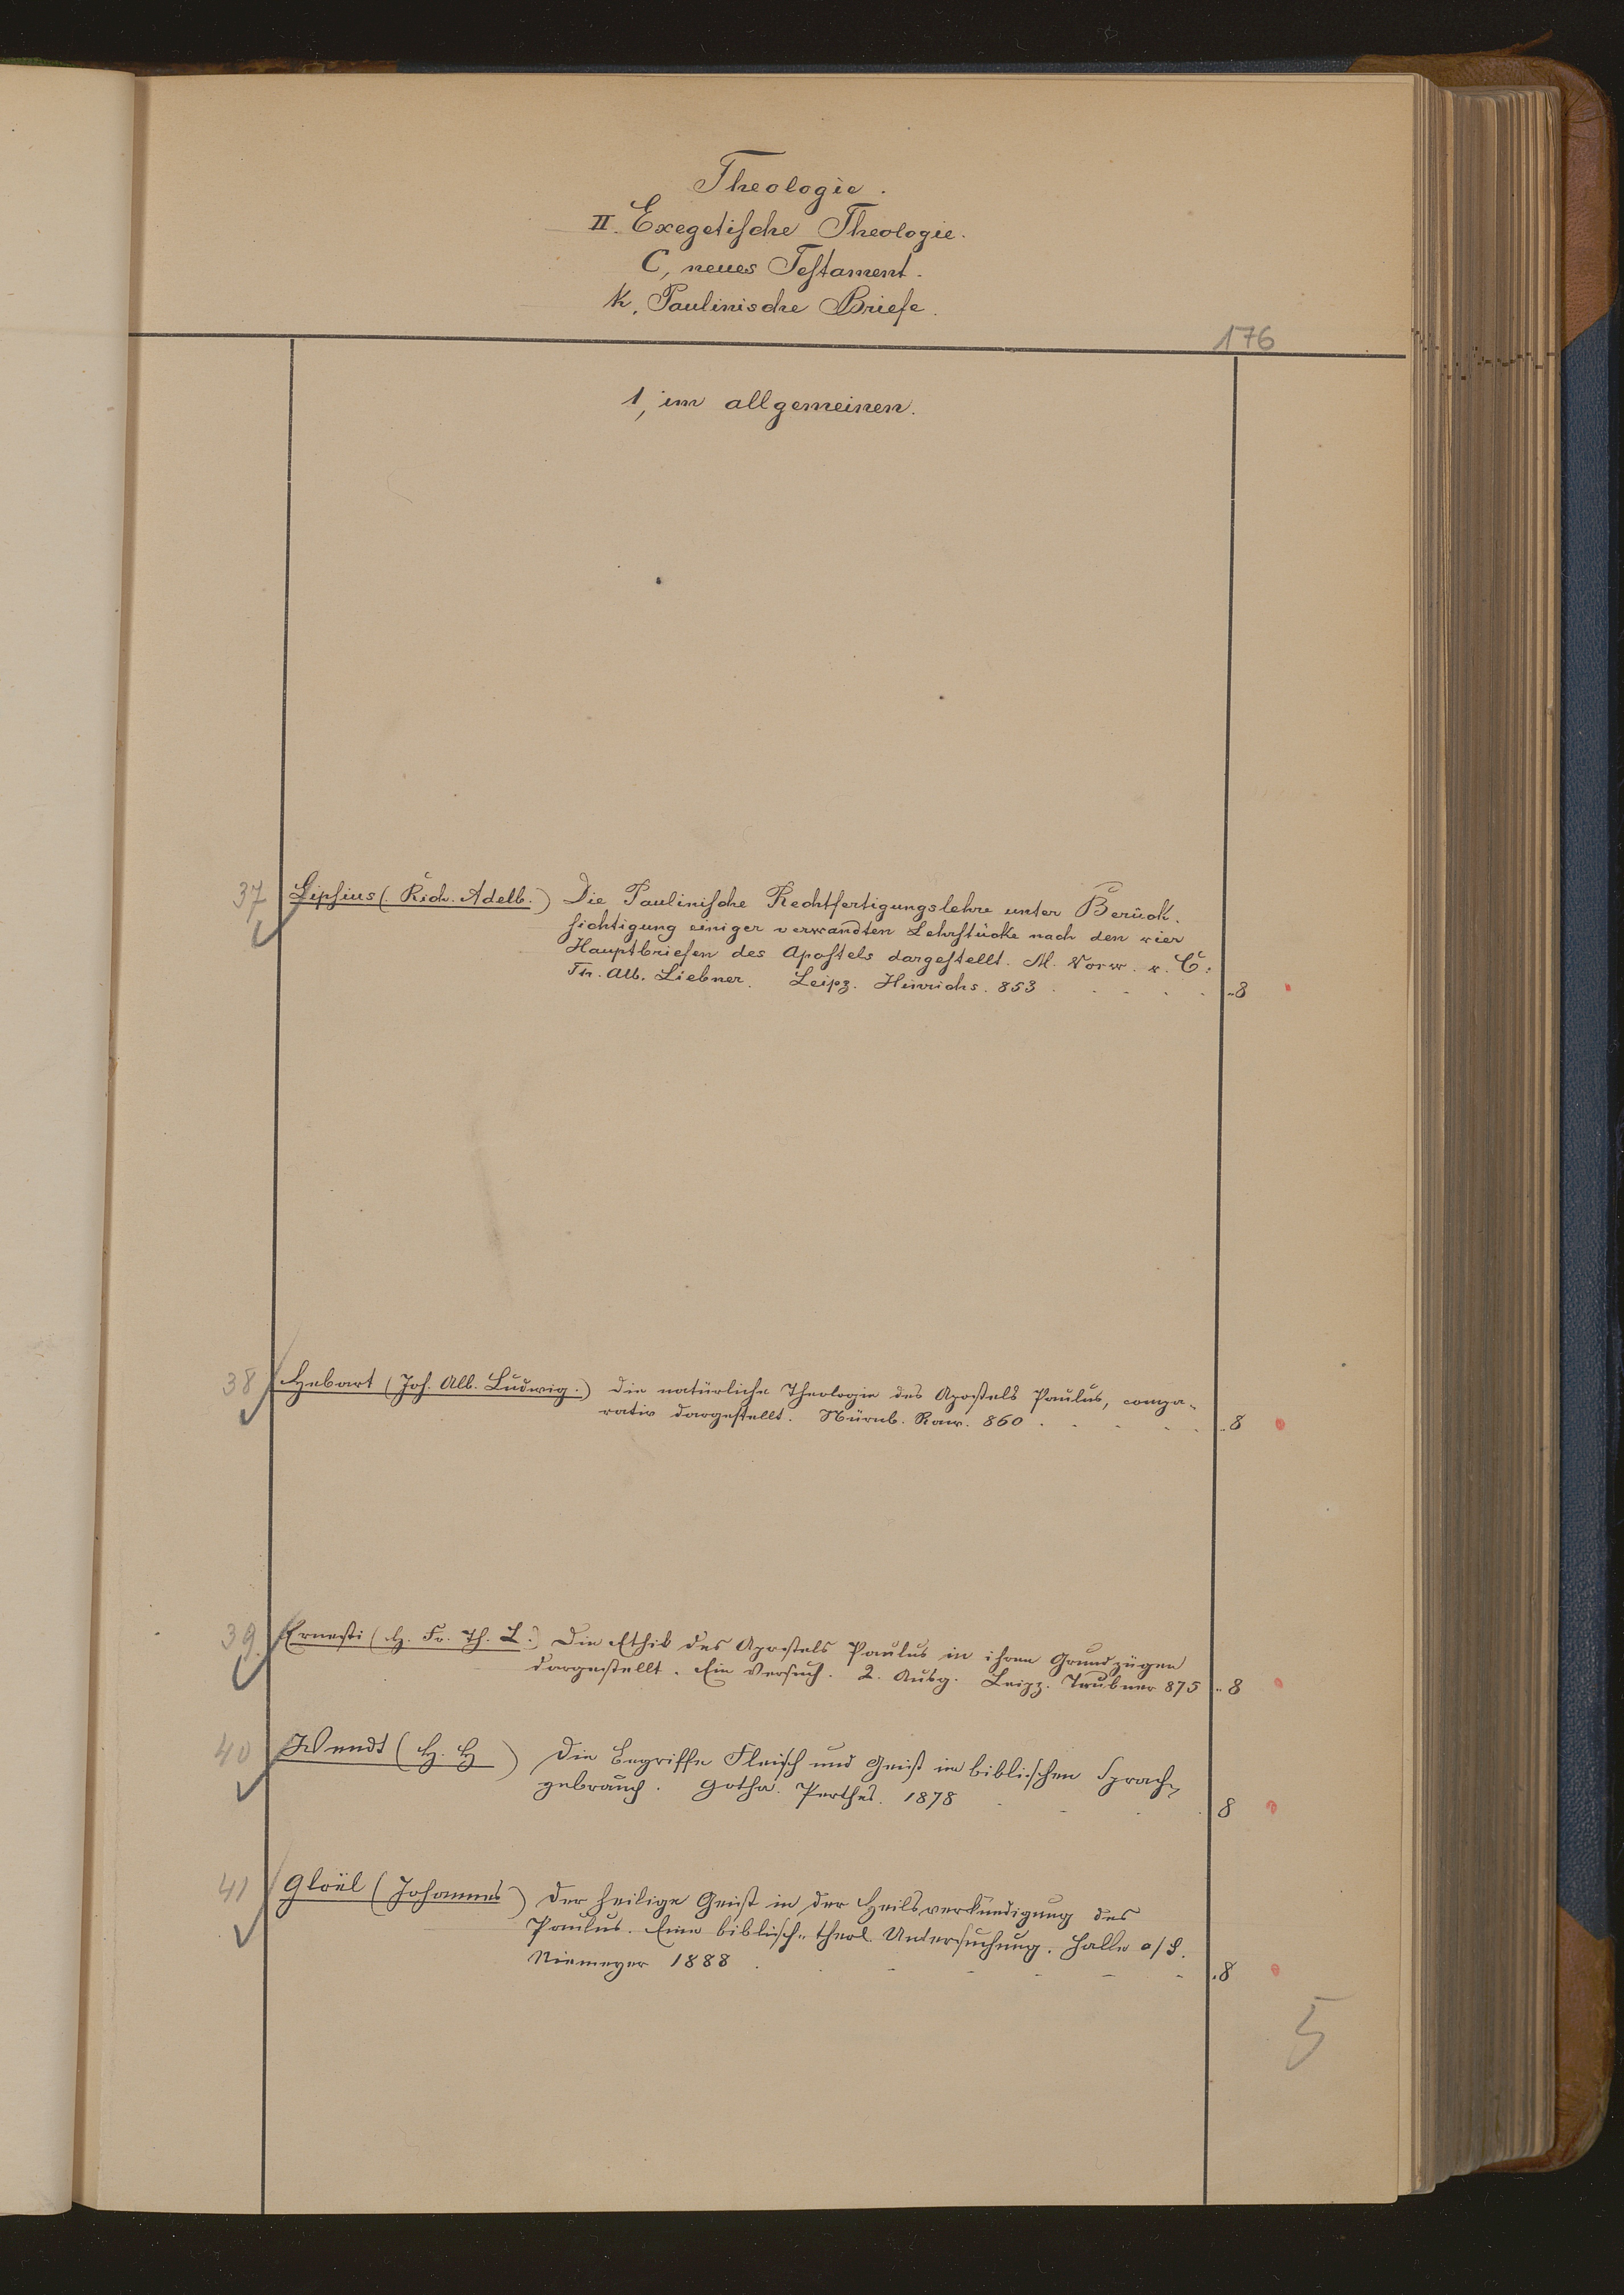 Theologie.
II. Exegetische Theologie.
C, neues Testament.
k, Paulinische Briefe.
176
1, im allgemeinen.
37 Lipsius (Rich. Adelb.) Die Paulinische Rechtfertigungslehre unter Berück-
sichtigung einiger verwandten Lehrstücke nach den vier
Hauptbriefen des Apostels dargestellt. M. Vorw. v. C.
Th. Alb. Liebner. Leipz. Hinrichs. 853 . . . . . 8
38 Hebart (Joh. Alb. Ludwig.) Die natürliche Theologie des Apostels Paulus, compa-
rativ dargestellt. Nürnb. Raw. 860 . . . . . 8
39 Ernesti (H. Fr. Th. L.) Die Ethik des Apostels Paulus in ihren Grundzügen
dargestellt. Ein Versuch. 2. Ausg. Leipz. Teubner 875 8
40 Wendt (H. H ) Die Begriffe Fleisch und Geist im biblischen Sprach-
gebrauch. Gotha. Perthes. 1878 . . . . 8
41 Gloël (Johannes) Der heilige Geist in der Heilsverkündigung des
Paulus. Eine biblisch-theol. Untersuchung. Halle a/S.
Niemeyer 1888 . . . . . . . 8
5